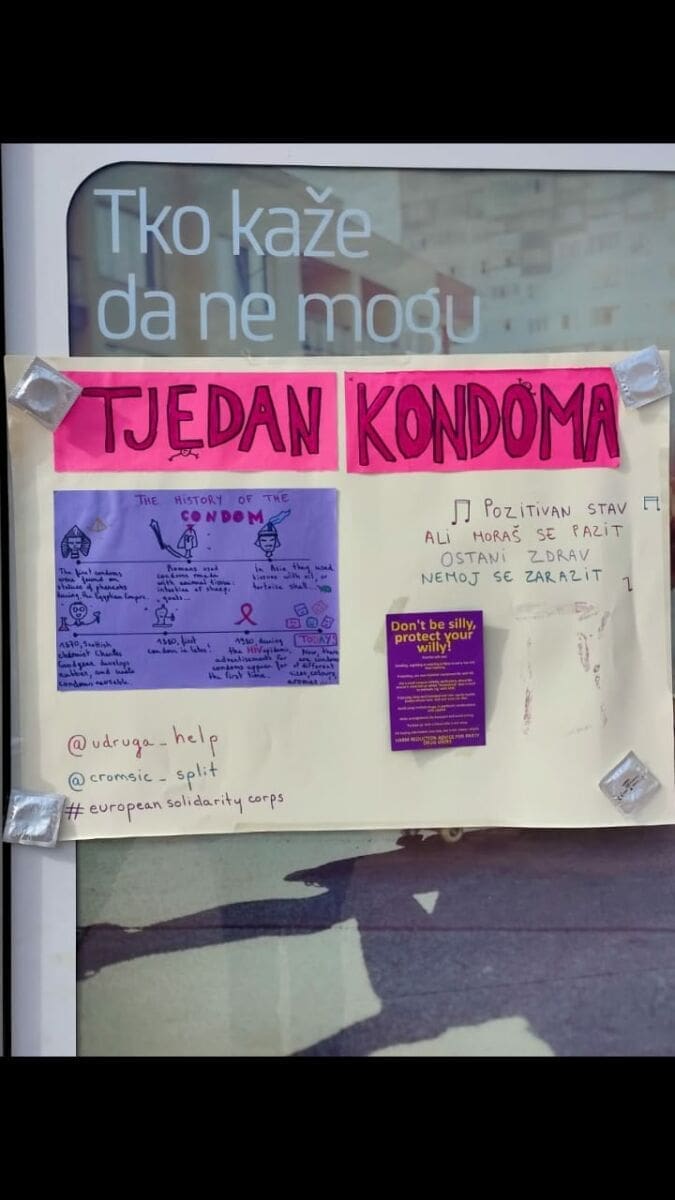 Tko kaže
da ne mogu
TJEDAN KONDOMA
THE HISTORY OF THE
CONDOM
The first condoms
were found on
statues of pharaohs
during the Egyptian Empire.
Romans used
condoms made
with animal tissue:
intestine of sheep,
goats...
In Asia they used
tissues with oil, or
tortoise shell...
1870, Scottish
chemist Charles
Goodyear develops
rubber, and
condoms reusable.
1880, first
condom in latex!
1980, during
the HIV epidemic,
advertisements for
condoms appear for
the first time.
TODAY!
Now, there
are condoms
of different
sizes, colours,
aromas...
POZITIVAN STAV
ALI MORAŠ SE PAZIT
OSTANI ZDRAV
NEMOJ SE ZARAZIT
Don't be silly,
protect your
willy!
HARM REDUCTION ADVICE FOR PARTY
DRUG USERS
@udruga_help
@cromsic_split
#european solidarity corps